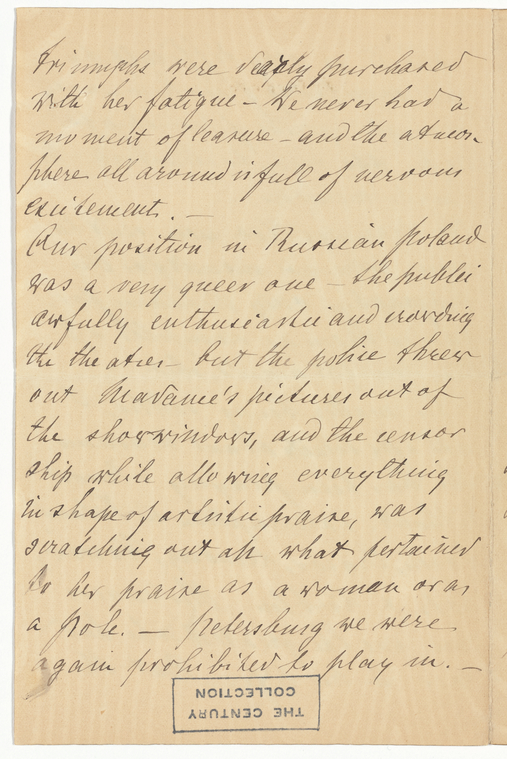 triumphs were dearly purchased
with her fatigue – We never had a
moment of leasure – and the atmos-
phere all around is full of nervous
excitement. –
Our position in Russian Poland
was a very queer one – the public
awfully enthusiastic and crowding
the theatres – but the police threw
out Madame's pictures out of
the showwindows, and the censor
ship while allowing everything
in shape of artistic praise, was
scratching out all what pertained
to her praise as a woman or as
a Pole. – Petersburg we were
again prohibited to play in. –
THE CENTURY
COLLECTION